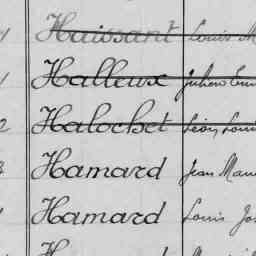 Haissant Louis M
Halleux Julien
Halochet Léon Loui
Hamard Jean Mau
Hamard Louis Jos